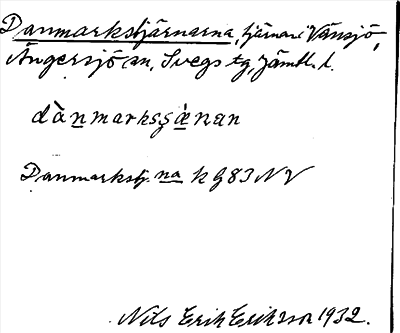 Danmarkstjärnarna, tjärnar i Vänsjö,
Ängersjö sn, Svegs tg, Jämtl. l.
dànmarksʂæ̀nan
Danmarkstj. na k G83 NV
Nils Erik Eriksson 1932.